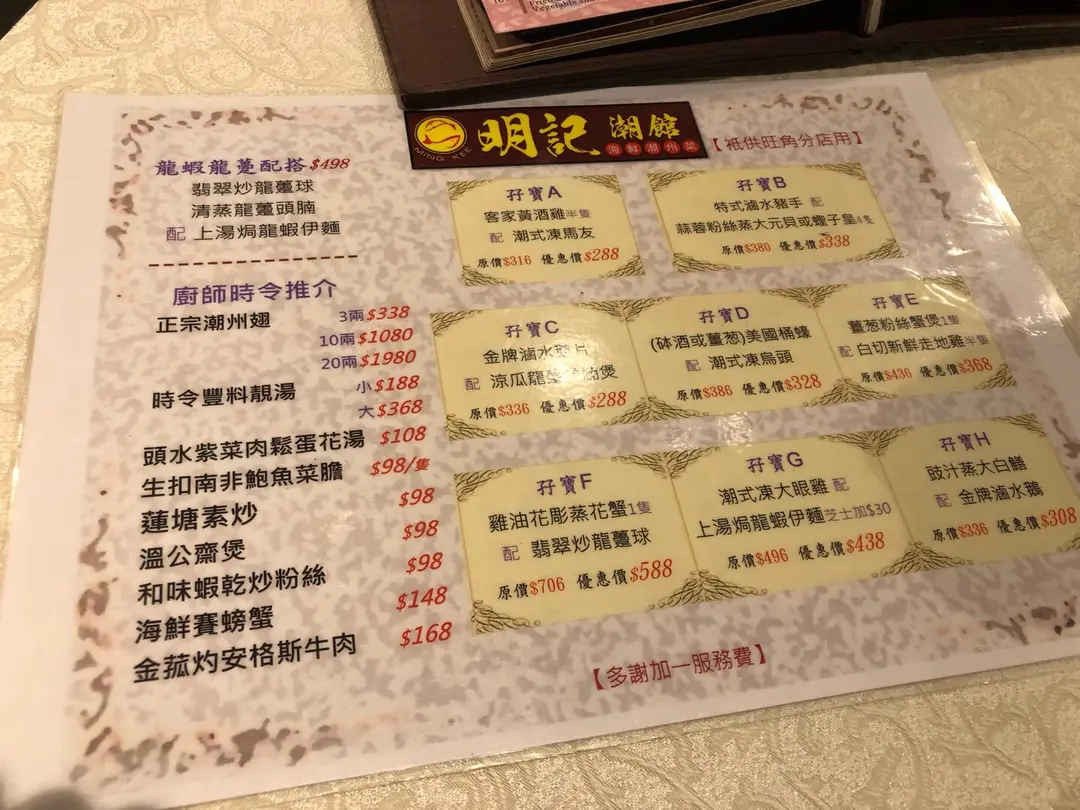 Fried
Vegetable and
明記 潮館
MING KEE
海鮮潮州菜
【祇供旺角分店用】
龍蝦龍躉配搭 $498
翡翠炒龍躉球
清蒸龍躉頭腩
配 上湯焗龍蝦伊麵
廚師時令推介
正宗潮州翅 3兩 $338
10兩 $1080
20兩 $1980
時令豐料靚湯 小 $188
大 $368
頭水紫菜肉鬆蛋花湯 $108
生扣南非鮑魚菜膽 $98/隻
蓮塘素炒 $98
溫公齋煲 $98
和味蝦乾炒粉絲 $98
海鮮賽螃蟹 $148
金菰灼安格斯牛肉 $168
孖寶A
客家黃酒雞半隻
配 潮式凍馬友
原價$316 優惠價$288
孖寶B
特式滷水豬手 配
蒜蓉粉絲蒸大元貝或蟶子皇4隻
原價$380 優惠價$338
孖寶C
金牌滷水鵝片
配 涼瓜龍躉 腩煲
原價$336 優惠價$288
孖寶D
(砵酒或薑葱)美國桶蠔
配 潮式凍烏頭
原價$386 優惠價$328
孖寶E
薑葱粉絲蟹煲1隻
配 白切新鮮走地雞半隻
原價$436 優惠價$368
孖寶F
雞油花彫蒸花蟹1隻
配 翡翠炒龍躉球
原價$706 優惠價$588
孖寶G
潮式凍大眼雞 配
上湯焗龍蝦伊麵芝士加$30
原價$496 優惠價$438
孖寶H
豉汁蒸大白鱔
配 金牌滷水鵝
原價$336 優惠價$308
【多謝加一服務費】